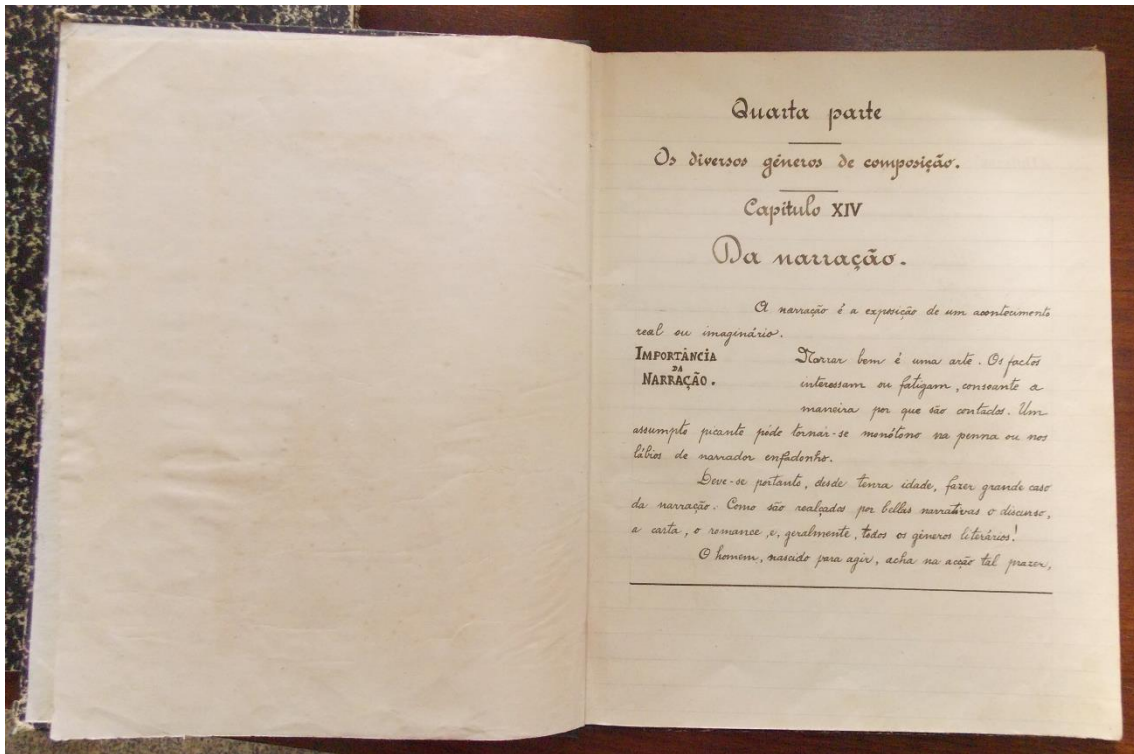 Quarta parte
Os diversos géneros de composição.
Capitulo XIV
Da narração.
A narração é a exposição de um acontecimento
real ou imaginário.
IMPORTÂNCIA
DA
NARRAÇÃO.
Narrar bem é uma arte. Os factos
interessam ou fatigam, consoante a
maneira por que são contados. Um
assumpto picante póde tornar-se monótono na penna ou nos
lábios de narrador enfadonho.
Deve-se portanto, desde tenra idade, fazer grande caso
da narração. Como são realçados por bellas narrativas o discurso,
a carta, o romance, e, geralmente, todos os géneros literários!
O homem, nascido para agir, acha na acção tal prazer,